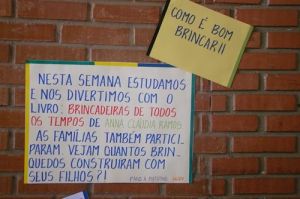 COMO É BOM
BRINCAR!!
NESTA SEMANA ESTUDAMOS
E NOS DIVERTIMOS COM O
LIVRO: BRINCADEIRAS DE TODOS
OS TEMPOS DE ANNA CLÁUDIA RAMOS.
AS FAMÍLIAS TAMBÉM PARTICI-
PARAM. VEJAM QUANTOS BRIN-
QUEDOS CONSTRUÍRAM COM
SEUS FILHOS?!